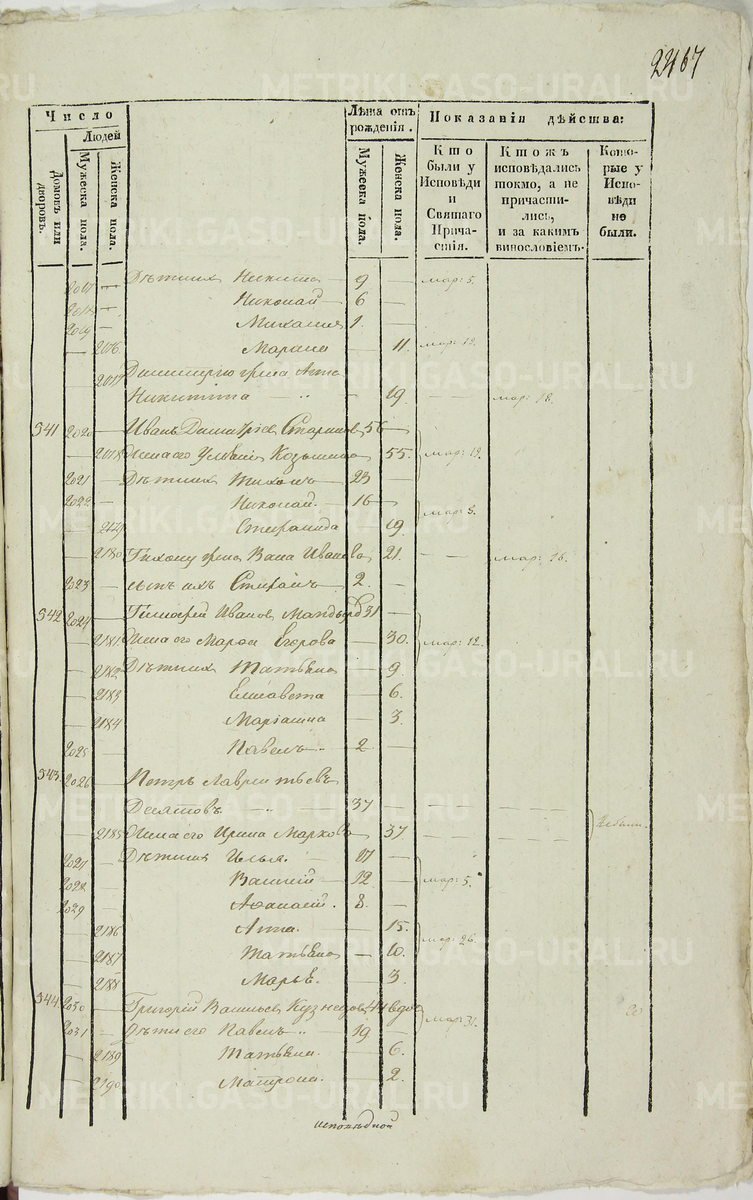 2467
Число
Людей
Домовъ или дворовъ.
Мужеска пола.
Женска пола.
Лѣта отъ рожденія.
Мужеска пола.
Женска пола.
Показанія дѣйства:
Кто были у Исповѣди и Святаго Причастія.
Ктожъ исповѣдались токмо, а не причастились, и за какимъ винословіемъ.
Которые у Исповѣди не были.
2017 — Дѣти ихъ Никита — 9 — мар: 5.
2018 — Николай — 6 —
2019 — Михаилъ 1. —
— 2176 — 11. мар: 12.
— 2177 Димитрію жена Анна
Никитина — 19. — — мар: 18.
541 2020 — Иванъ Димитріев 56 —
— 2178 Жена его — 55. мар: 12.
2021 — Дѣти ихъ Тихонъ — 23 —
2022 — Николай. — 16 —
— 2179 Стефанида — 19. мар: 5.
— 2180 Тихону жена Иванова 21. — — мар: 18.
2023 — сынъ ихъ Стефанъ — 2. —
542 2024 — Тимофей Иванов 31 —
— 2181 Жена его Марфа Егорова — 30. мар: 12.
— 2182 Дѣти ихъ Татьяна — 9.
— 2183 Елисавета — 6.
— 2184 Маріанна — 3.
2025 — Павелъ — 2 —
543. 2026 — Петръ Лаврентьевъ
Десятовъ — 37 —
— 2185 Жена его Ирина Маркова — 37 — Не были.
2027 — Дѣти ихъ Илья. — 17 —
2028 — Василій — 12 — мар: 5.
2029 — Афанасій. 8. —
— 2186 Анна. — 15. мар: 26.
— 2187 Татьяна — 10.
— 2188 Марья. — 3.
544. 2030 — Григорій Васильев Кузнецов 44 вдов
2031 — Дѣти его Павелъ — 19 — мар: 31.
— 2189 Татьяна. — 6.
— 2190 Матрона. — 2.
исповѣдной
METRIKI.GASO-URAL.RU